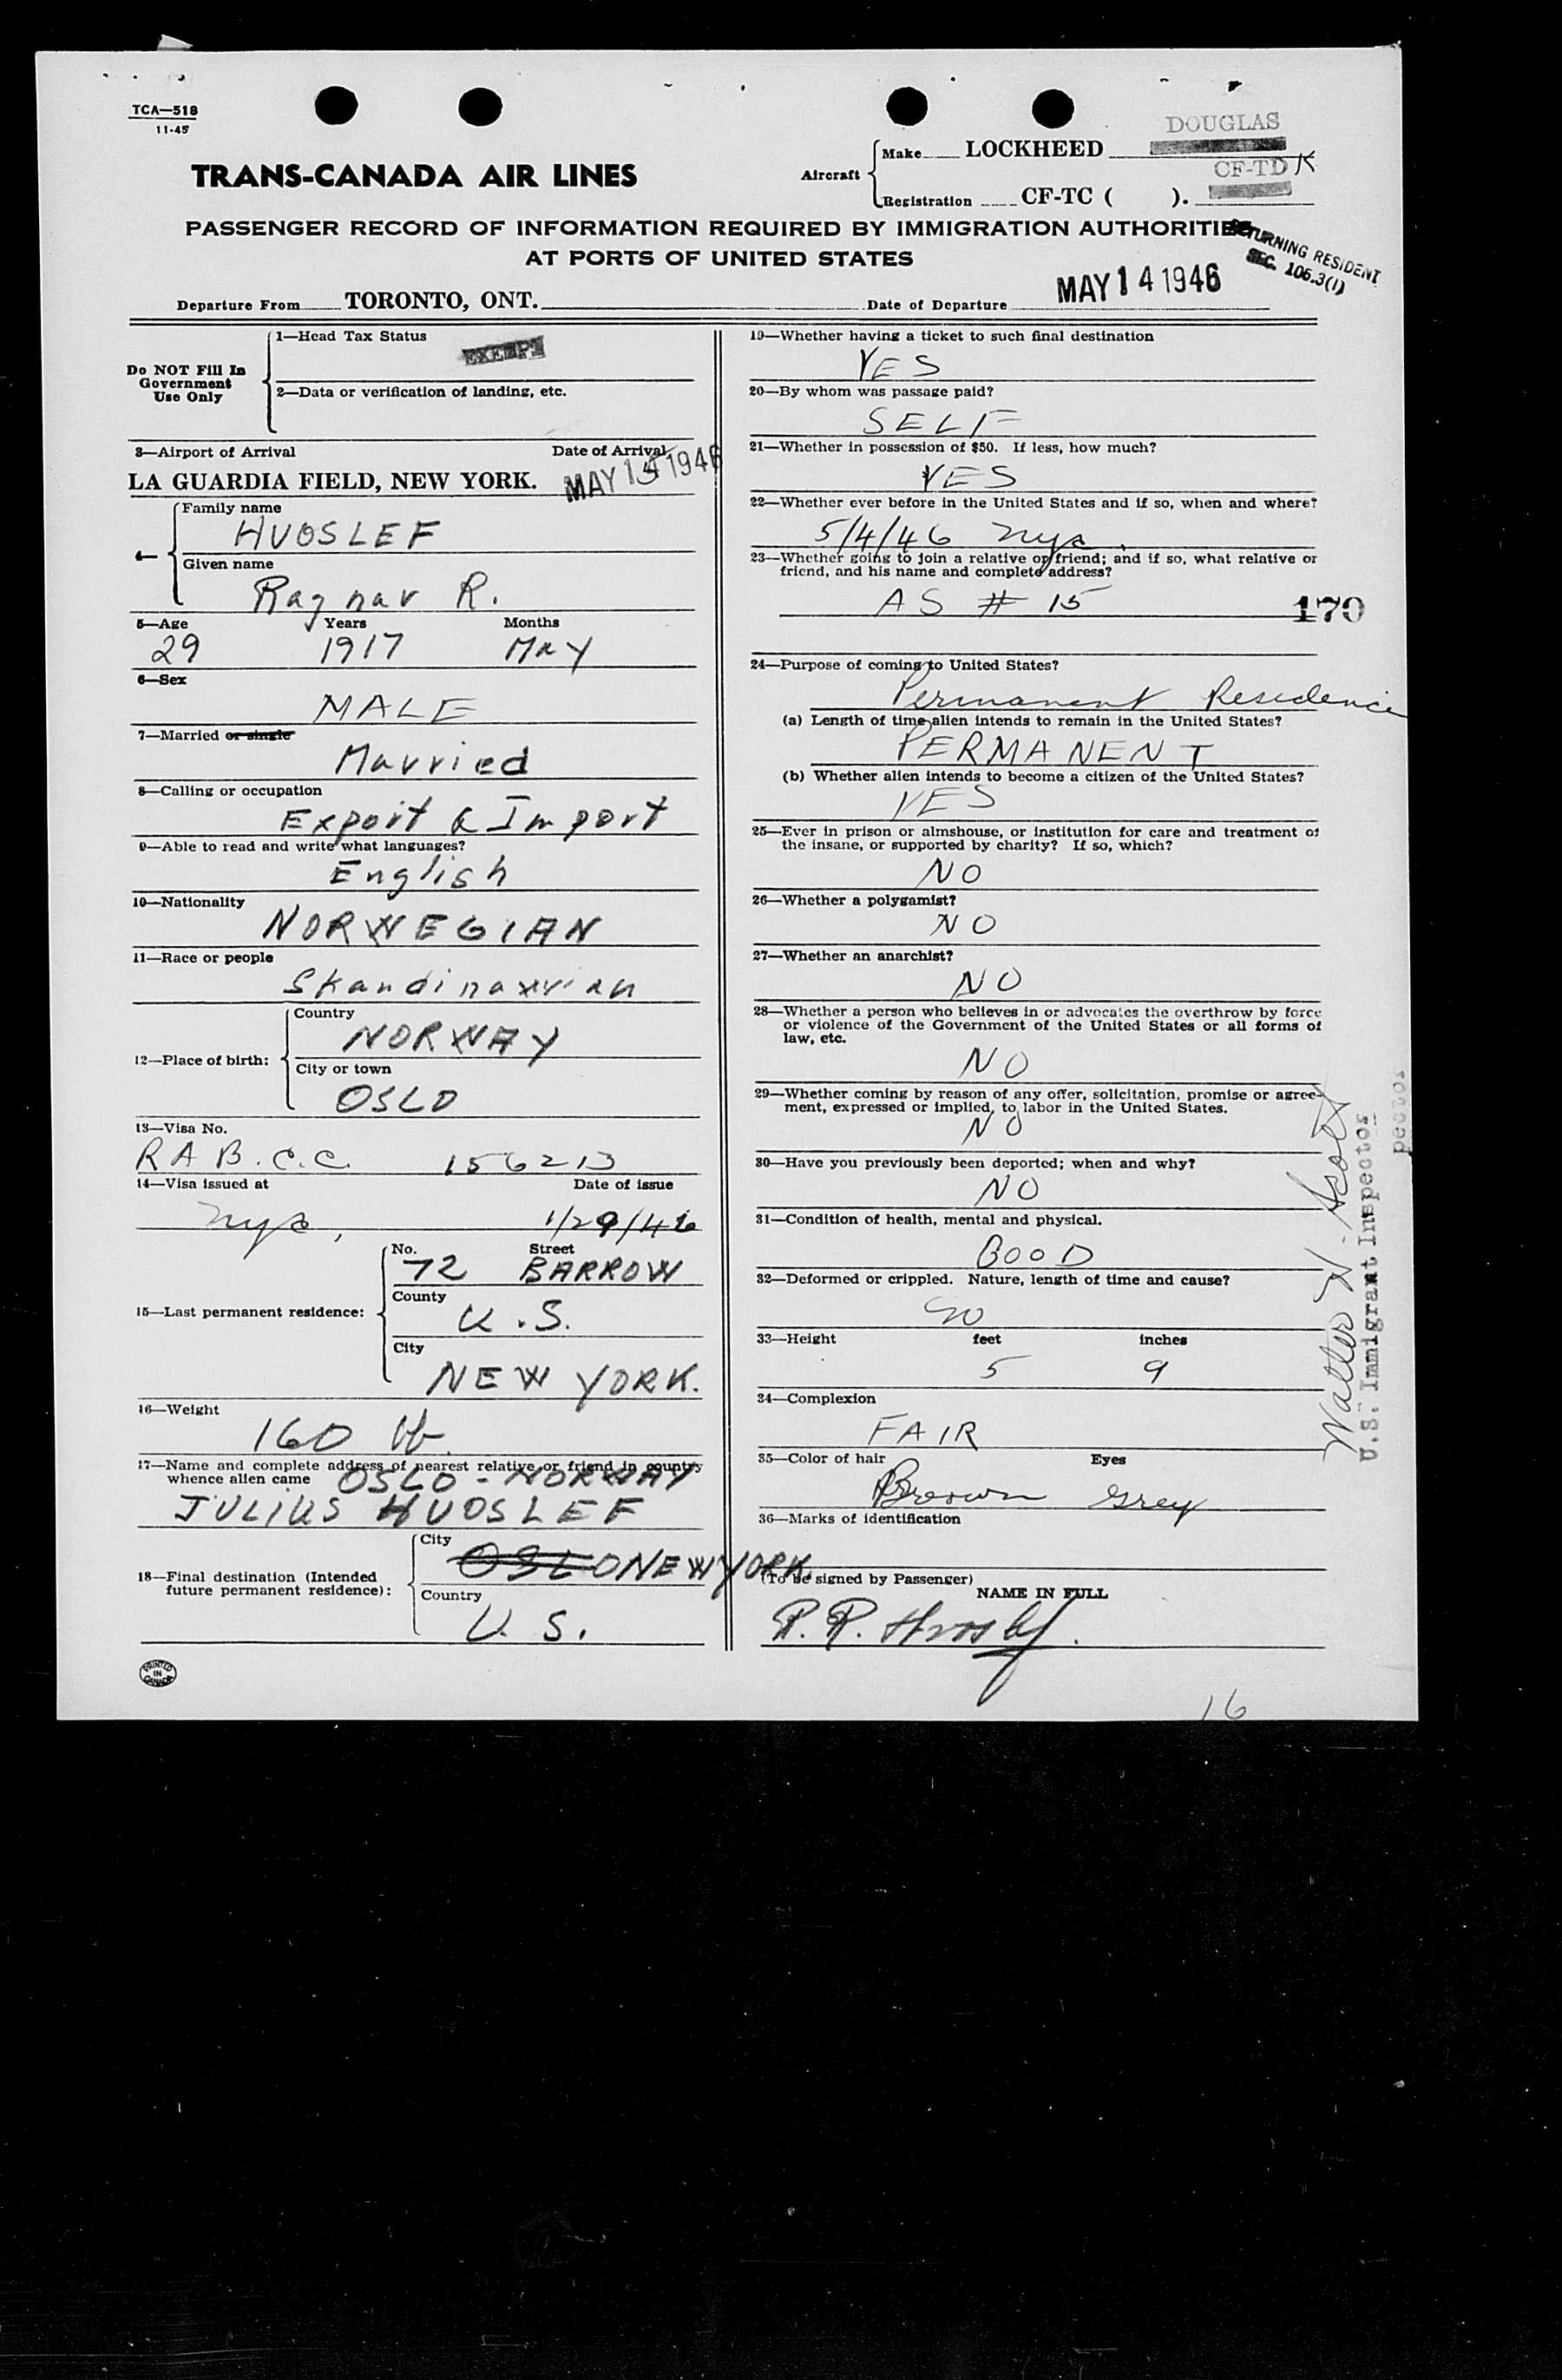 TCA—518
11-45
TRANS-CANADA AIR LINES
Aircraft
Make LOCKHEED DOUGLAS
Registration CF-TC ( ). CF-TD K
PASSENGER RECORD OF INFORMATION REQUIRED BY IMMIGRATION AUTHORITIES
AT PORTS OF UNITED STATES
RETURNING RESIDENT
SEC. 106.3(1)
Departure From TORONTO, ONT. Date of Departure MAY 14 1946
Do NOT Fill In
Government
Use Only
1—Head Tax Status
EXEMPT
2—Data or verification of landing, etc.
3—Airport of Arrival Date of Arrival
LA GUARDIA FIELD, NEW YORK. MAY 1946
4—
Family name
HVOSLEF
Given name
Ragnar R.
5—Age Years Months
29 1917 May
6—Sex
MALE
7—Married or single
Married
8—Calling or occupation
Export & Import
9—Able to read and write what languages?
English
10—Nationality
NORWEGIAN
11—Race or people
Skandinawian
12—Place of birth:
Country
NORWAY
City or town
OSLO
13—Visa No.
R A B.C.C. 156213
14—Visa issued at Date of issue
nyc, 1/29/46
15—Last permanent residence:
No. Street
72 BARROW
County
U.S.
City
NEW YORK.
16—Weight
160 lb.
17—Name and complete address of nearest relative or friend in country
whence alien came OSLO - NORWAY
JULIUS HVOSLEF
18—Final destination (Intended
future permanent residence):
City
OSLO NEW YORK.
Country
U. S.
PRINTED
IN
CANADA
19—Whether having a ticket to such final destination
YES
20—By whom was passage paid?
SELF
21—Whether in possession of $50. If less, how much?
YES
22—Whether ever before in the United States and if so, when and where?
5/4/46 nyc.
23—Whether going to join a relative or friend; and if so, what relative or
friend, and his name and complete address?
AS # 15 170
24—Purpose of coming to United States?
Permanent Residence
(a) Length of time alien intends to remain in the United States?
PERMANENT
(b) Whether alien intends to become a citizen of the United States?
YES
25—Ever in prison or almshouse, or institution for care and treatment of
the insane, or supported by charity? If so, which?
NO
26—Whether a polygamist?
NO
27—Whether an anarchist?
NO
28—Whether a person who believes in or advocates the overthrow by force
or violence of the Government of the United States or all forms of
law, etc.
NO
29—Whether coming by reason of any offer, solicitation, promise or agree-
ment, expressed or implied, to labor in the United States.
NO
30—Have you previously been deported; when and why?
NO
31—Condition of health, mental and physical.
GOOD
32—Deformed or crippled. Nature, length of time and cause?
no
33—Height feet inches
5 9
34—Complexion
FAIR
35—Color of hair Eyes
Brown Grey
36—Marks of identification
(To be signed by Passenger)
NAME IN FULL
R. R. Hvoslef.
Walter N.
U.S. Immigrant Inspector
pector
16